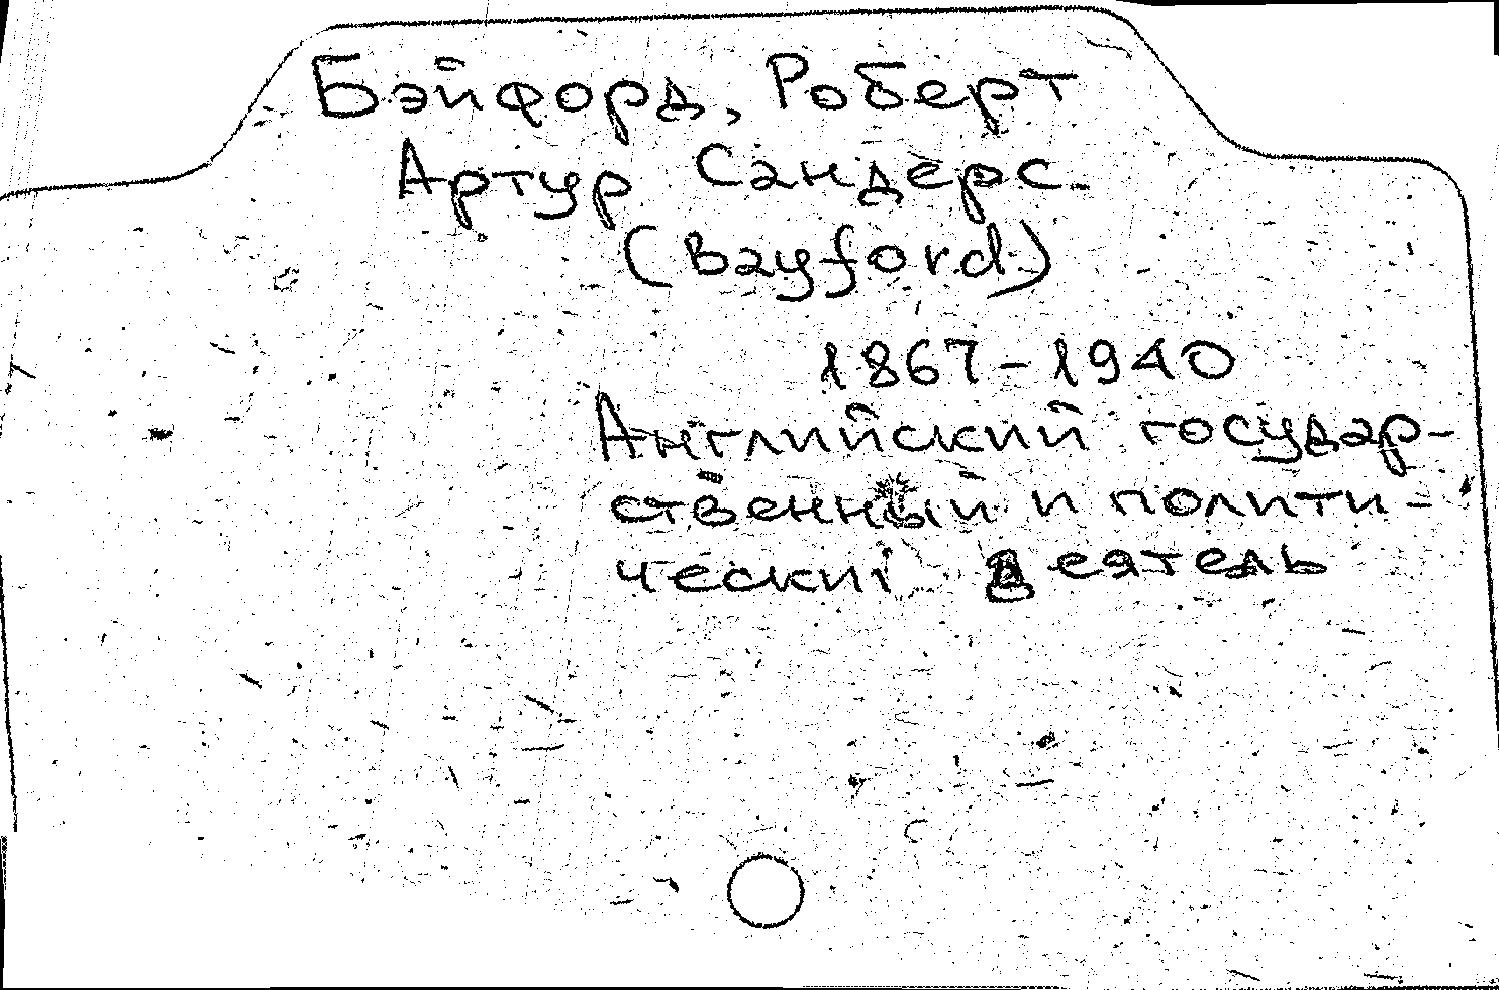 Бэйфорд, Роберт
Артур Сандерс.
(Bayford)
1867-1940
Английский государ-
ственный и полити-
ческий деятель